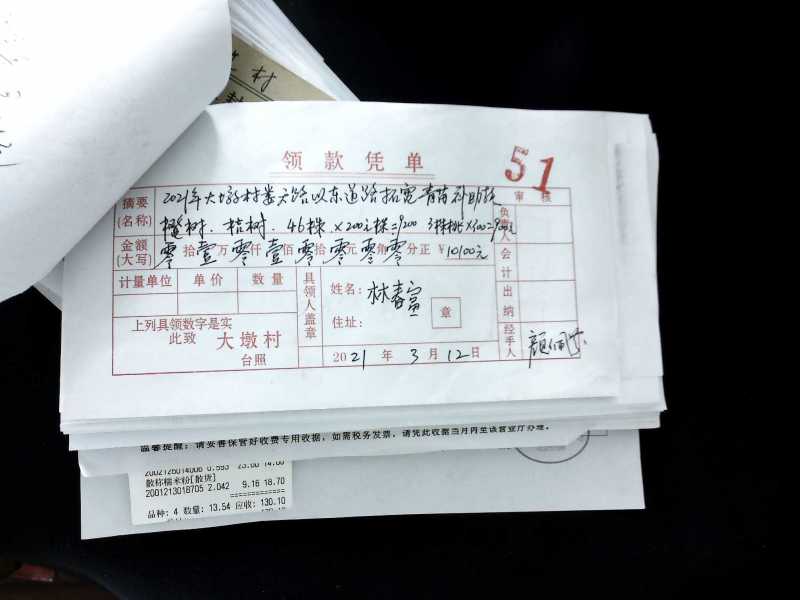 村
领款凭单
51
摘要(名称) 2021年大墩村娄大路以东道路拓宽青苗补助款
树、桔树、46株×200元/株=9200 3株桃×300=900元
审核
负责人
会计
出纳
经手人
金额(大写) 零拾壹万零仟壹佰零拾零元零角零分正 ¥10100元
计量单位 单价 数量
具领人盖章
姓名: 林春富
住址:
章
上列具领数字是实
此致 大墩村
台照
2021年3月12日
温馨提醒: 请妥善保管好收费专用收据, 如需税务发票, 请凭此收据当月内至该营业厅办理。
2002126014006 0.593 23.60 14.00
散称糯米粉[散货]
2001213018705 2.042 9.16 18.70
品种: 4 数量: 13.54 应收: 130.10